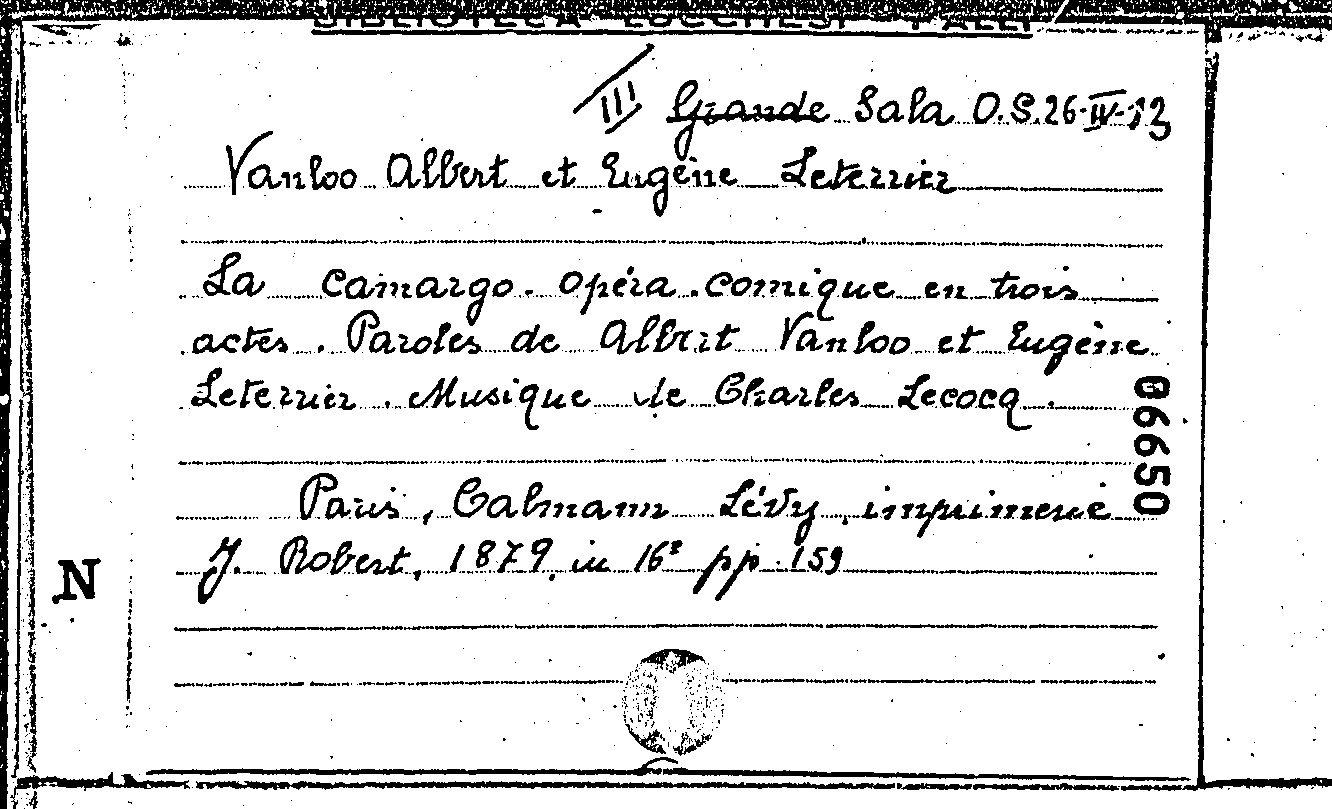 BIBLIOTECA LUCCHESI - PALLI
III Grande Sala O.S. 26-IV-13
Vanloo Albert et Eugène Leterrier
La Camargo. Opéra. comique en trois
actes. Paroles de Albert Vanloo et Eugène
Leterrier. Musique de Charles Lecocq.
Paris, Calmann Lévy, imprimerie
J. Robert, 1879, in 16º pp. 159
06650
N